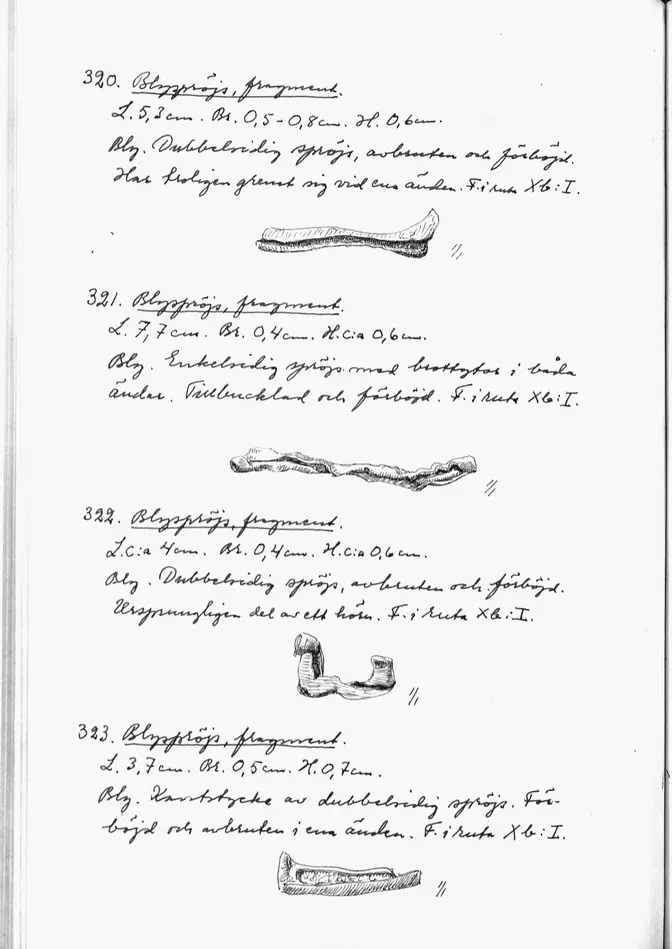 320. Blyspröjs, fragment.
L. 5,3 cm. Br. 0,5-0,8 cm. H. 0,6 cm.
Bly. Dubbelsidig spröjs, avbruten och förböjd.
Har troligen grenat sig vid ena änden. F. i ruta Xb:I.
1/1
321. Blyspröjs, fragment.
L. 7,7 cm. Br. 0,4 cm. H. c:a 0,6 cm.
Bly. Enkelsidig spröjs med brottytor i båda
ändar. Tillbucklad och förböjd. F. i ruta Xb:I.
1/1
322. Blyspröjs, fragment.
L. c:a 4 cm. Br. 0,4 cm. H. c:a 0,6 cm.
Bly. Dubbelsidig spröjs, avbruten och förböjd.
Ursprungligen del av ett hörn. F. i ruta Xb:I.
1/1
323. Blyspröjs, fragment.
L. 3,7 cm. Br. 0,5 cm. H. 0,7 cm.
Bly. Kantstycke av dubbelsidig spröjs. För-
böjd och avbruten i ena änden. F. i ruta Xb:I.
1/1